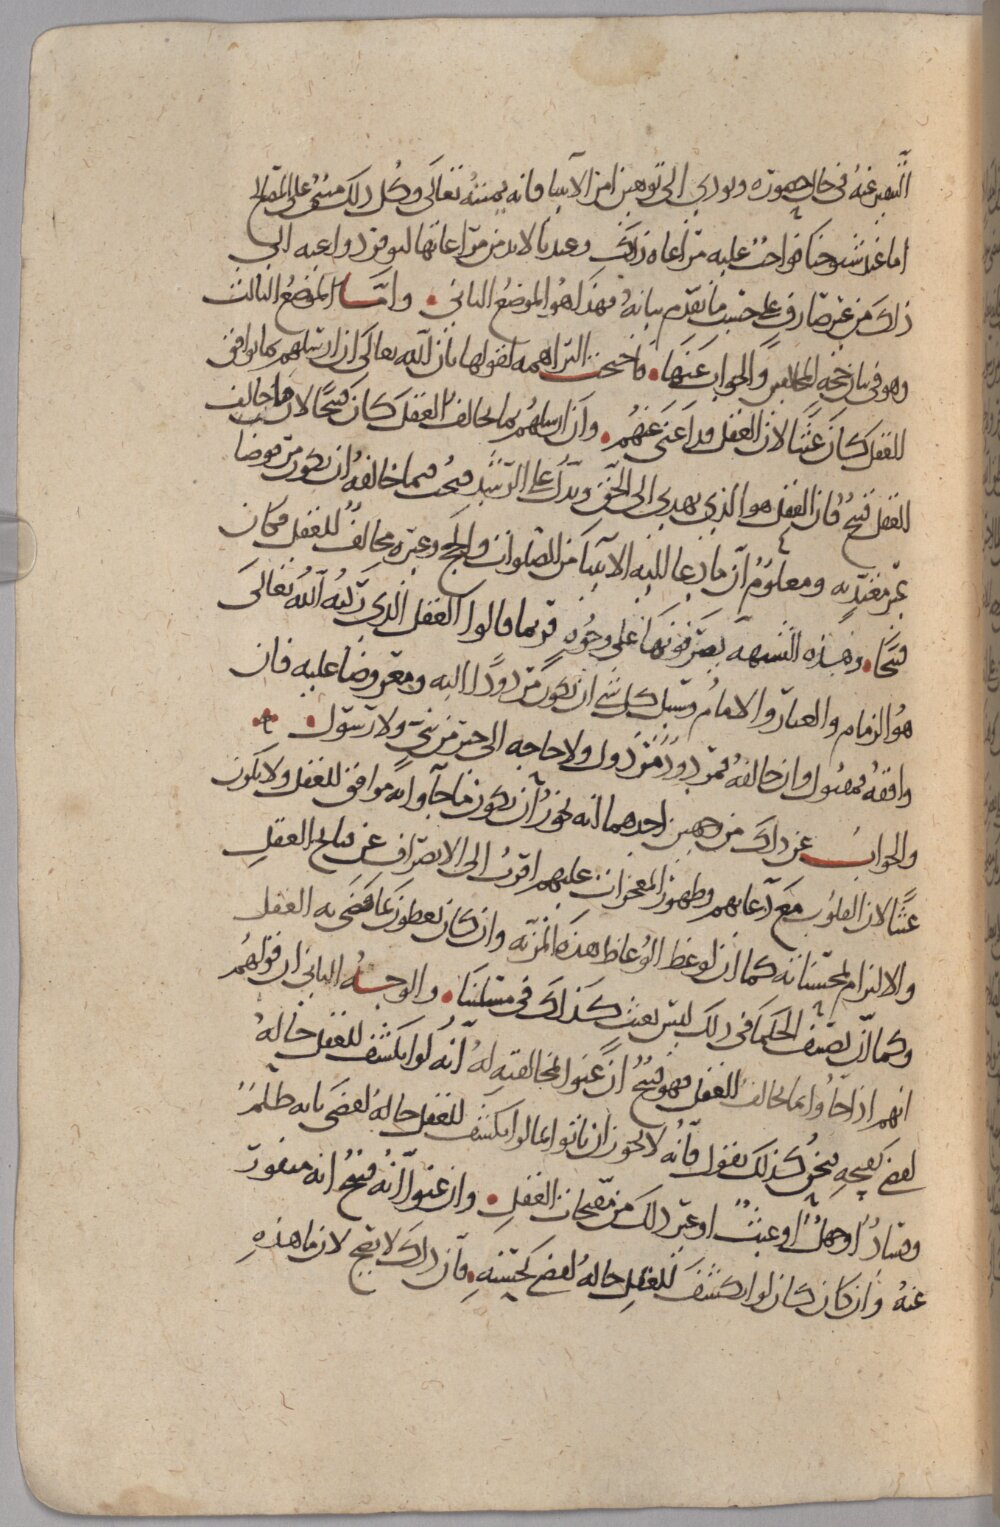 التنفير عنه في حال صورته ويودي الى توهين امر الانبيا فانه يمنعه تعالى وكل ذلك مبني على المصالح
اما عند شيوخنا فواجب عليه مراعاه ذلك وعندنا لابد من مراعاتها لتوفر دواعيه الى
ذلك من غير صارف على حسب ما تقدم بيانه فهذا هو الموضع الثاني • واما الموضع الثالث
وهو في بيان حجه المخالفين والجواب عنها • فاحتجت البراهمه لقولها بان الله تعالى ان ارسلهم بما يوافق
العقل كان عبثا لان العقل قد اغنى عنهم • وان ارسلهم بما يخالف العقل كان قبيحا لان ما خالف
العقل قبيح فان العقل هو الذي يهدي الى الحق ويدل على الرشد فيجب فيما خالفه ان يكون مرفوضا
غير معتد به ومعلوم ان ما دعا اليه الانبيا من الصلوات والحج وغيره مخالف للعقل فكان
قبيحا • وهذه الشبهه يصرفونها على وجوه فربما قالوا العقل الذي ركبه الله تعالى
هو الزمام والعيار والامام وسبيل كل شي ان يكون مردودا اليه ومعروضا عليه فان
وافقه فمقبول وان خالفه فمردود مرذول ولا حاجه الى خبر من نبي ولا رسول •
والجواب عن ذلك من وجهين احدهما انه يجوز ان يكون ما جاوا به موافق للعقل ولا يكون
عبثا لان القلوب مع دعائهم وظهور المعجزات عليهم اقرب الى الانصراف عن قبائح العقل
والالتزام لمحسناته كما ان لوعظ الوعاظ هذه المزيه وان كان يعظون بما قضى به العقل
وكما ان تصنيف الحكما في ذلك ليس بعبث كذلك في مسئلتنا • والوجه الثاني ان قولهم
انهم اذا جاوا بما يخالف العقل فهو قبيح ان عنوا لمخالفته له انه لو انكشف للعقل حاله
لقضى بقبحه فنحن كذلك نقول فانه لا يجوز ان ياتوا بما لو انكشف للعقل حاله لقضى بانه ظلم
وفساد او جهل او عبث او غير ذلك من مقبحات العقل • وان عنوا انه قبيح انه منفور
عنه وان كان كان لو انكشف للعقل حاله لقضى بحسنه • فان ذلك لا يقبح لان ما هذه